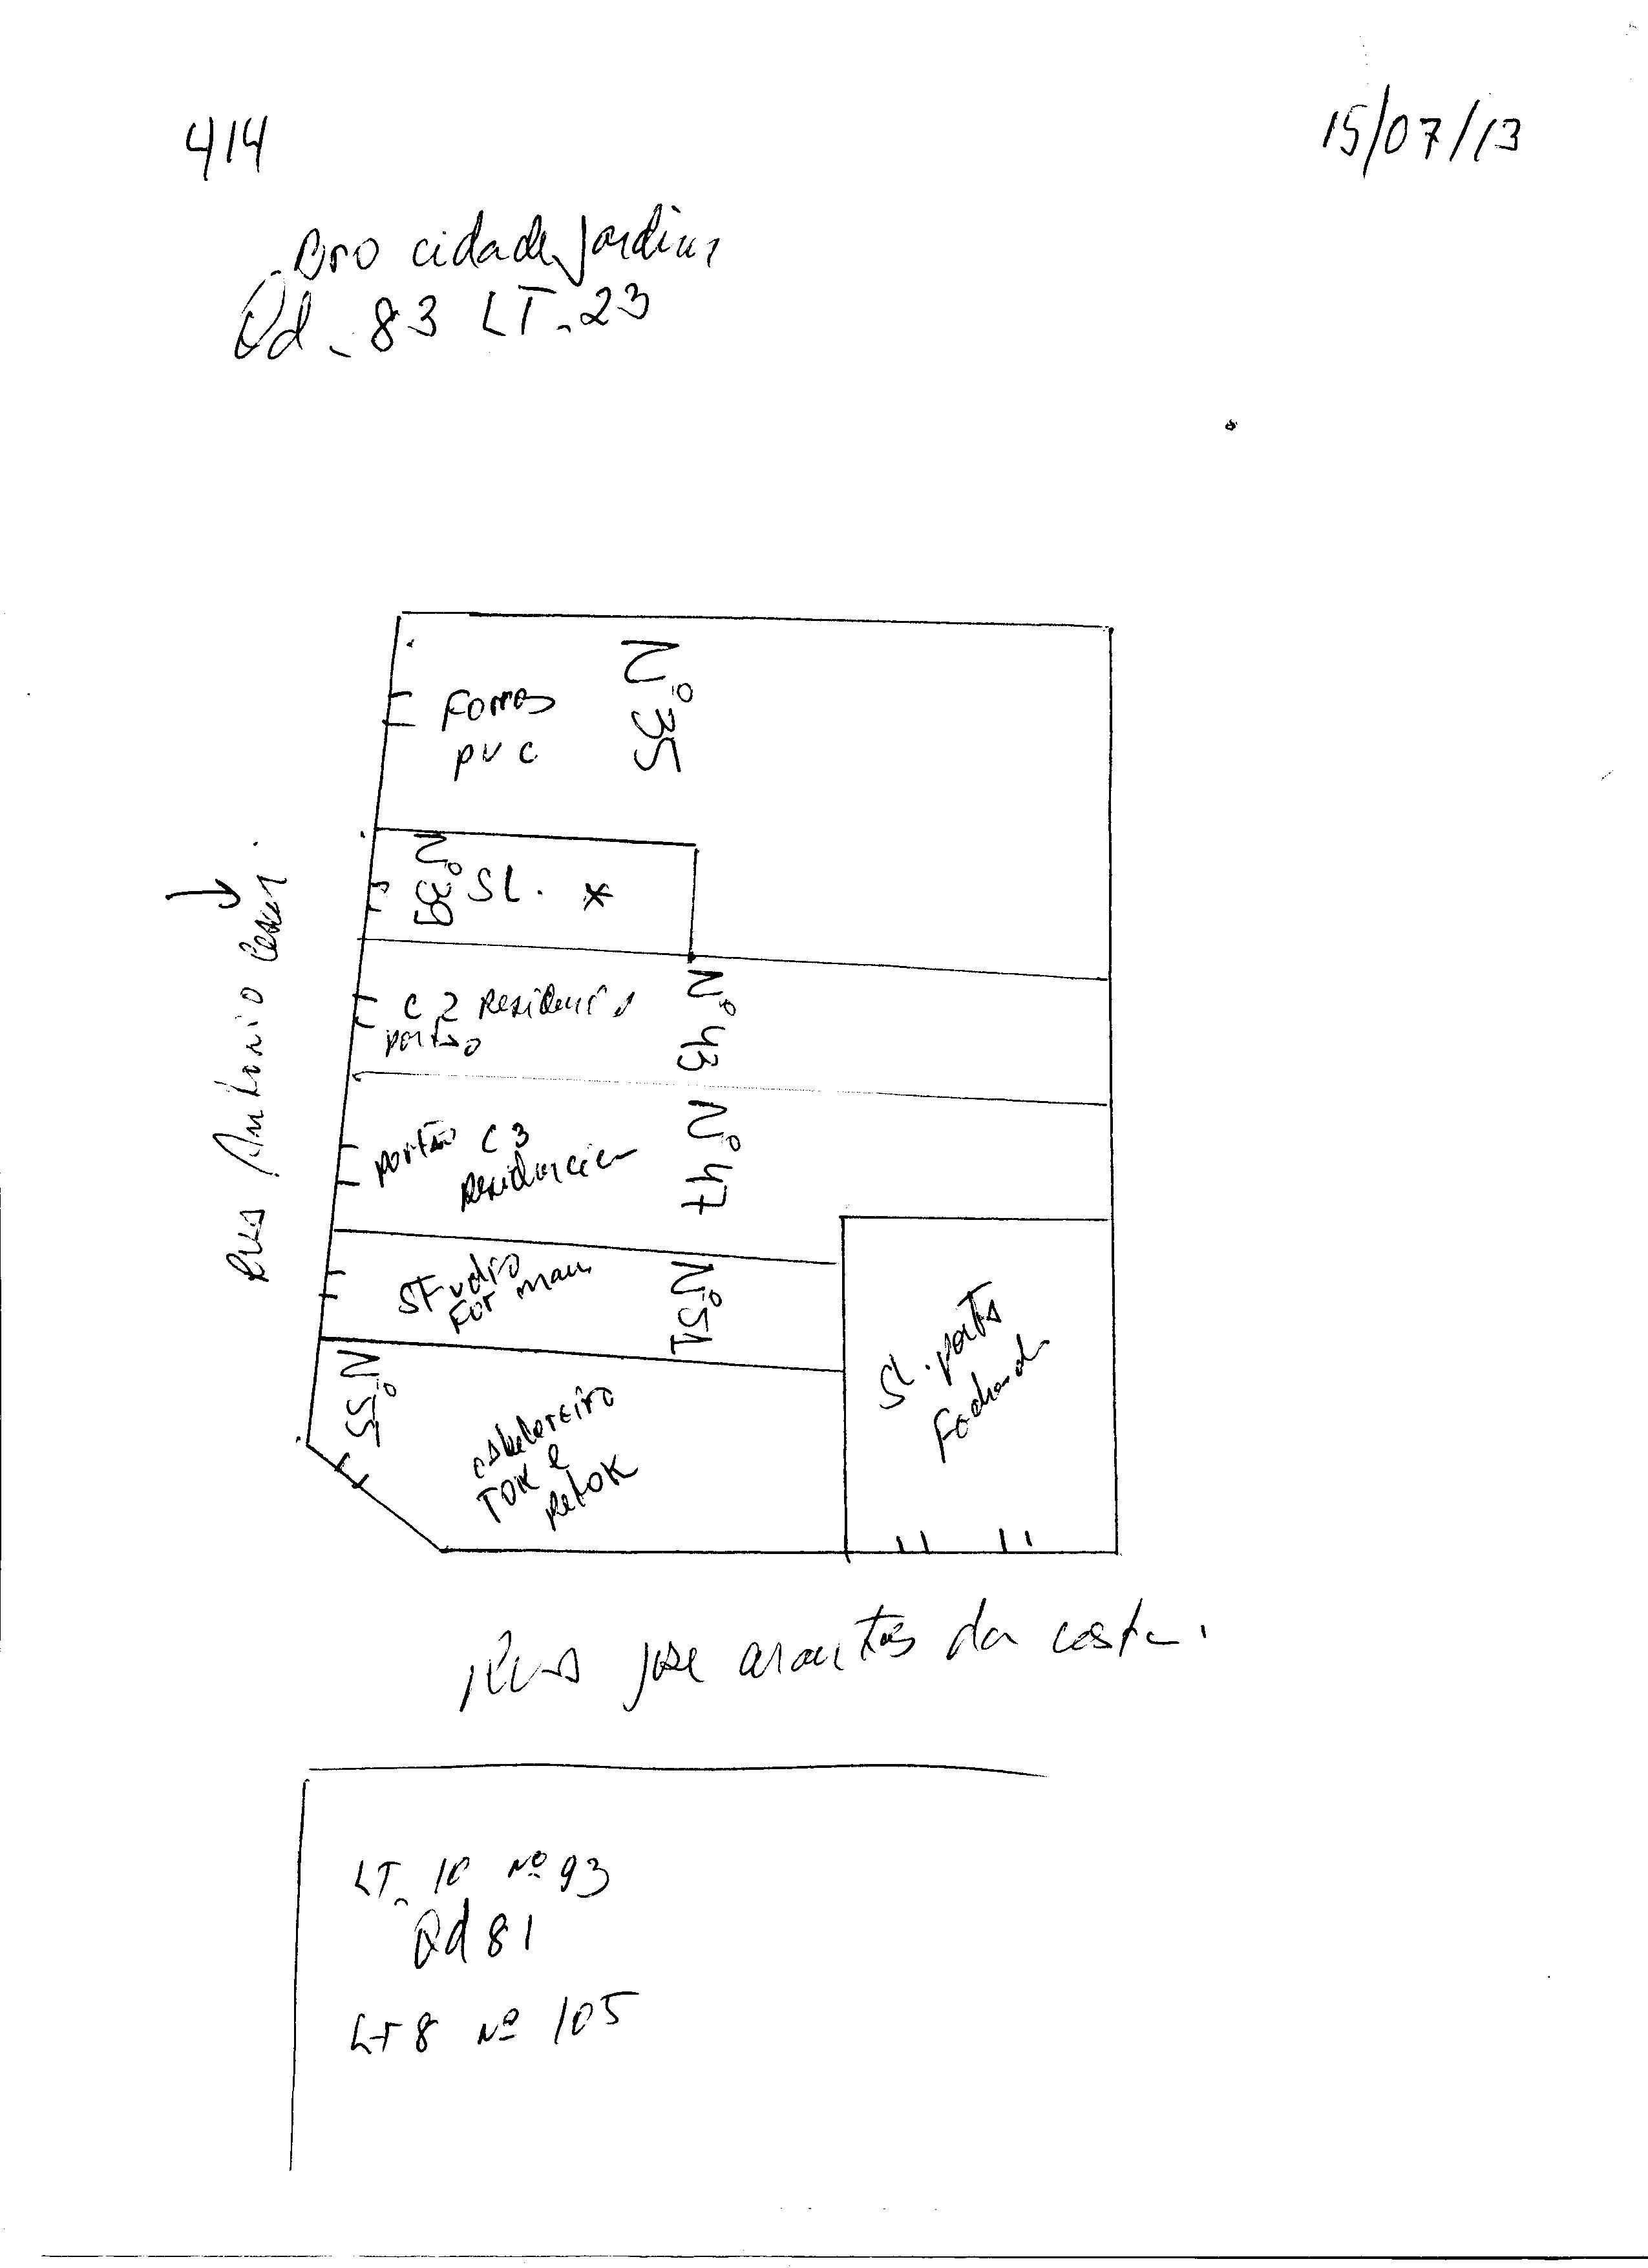 414
15/07/13
Bro cidade Jardim
Qd - 83 LT - 23
Forros
PVC
Nº 35
Nº 39
SL. *
C 2 Residencia
portão
Nº 43
portão C 3
Residencia
Nº 47
STudio
For man
Nº 51
Nº 55
cabeleireiro
TOK e
ReTOK
SL. porta
Fechada
Rua Antonio Cesar.
Rua jose arantes da costa.
LT - 10 Nº 93
Qd 81
LT 8 Nº 105